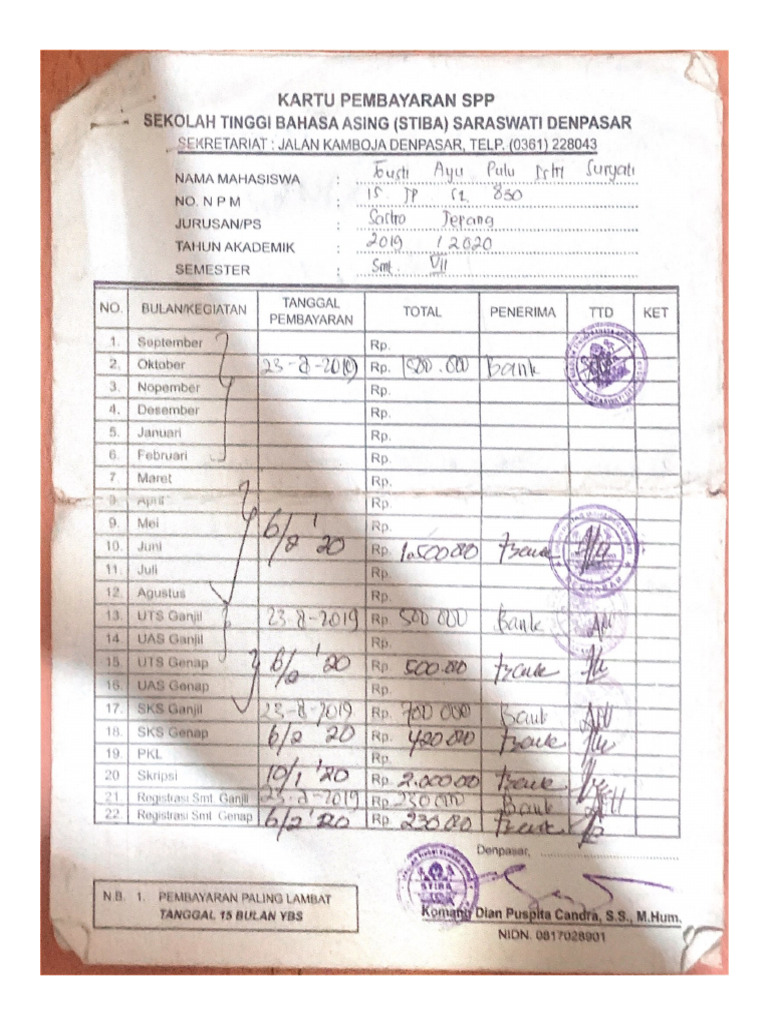 KARTU PEMBAYARAN SPP
SEKOLAH TINGGI BAHASA ASING (STIBA) SARASWATI DENPASAR
SEKRETARIAT : JALAN KAMBOJA DENPASAR, TELP. (0361) 228043
NAMA MAHASISWA : Gusti Ayu Putu Suryati
NO. N P M : 15 JP S1 830
JURUSAN/PS : Sastra Jepang
TAHUN AKADEMIK : 2019 / 2020
SEMESTER : Smt. VII
NO. BULAN/KEGIATAN TANGGAL PEMBAYARAN TOTAL PENERIMA TTD KET
1. September Rp.
2. Oktober 23-8-2019 Rp. 1500.000 Bank
3. Nopember Rp.
4. Desember Rp.
5. Januari Rp.
6. Februari Rp.
7 Maret Rp.
8. April Rp.
9. Mei Rp.
10. Juni 6/2 '20 Rp. 1.500.00 Bank
11. Juli Rp.
12. Agustus Rp.
13. UTS Ganjil 23-8-2019 Rp. 500 000 Bank
14. UAS Ganjil Rp.
15. UTS Genap 6/2 '20 Rp. 500.00 Bank
16. UAS Genap Rp.
17. SKS Ganjil 23-8-2019 Rp. 700 000 Bank
18. SKS Genap 6/2 20 Rp. 420.00 Bank
19 PKL Rp.
20 Skripsi 10/1 '20 Rp. 2.000.00 Bank
21. Registrasi Smt. Ganjil 23-8-2019 Rp. 230.000 Bank
22. Registrasi Smt. Genap 6/2 '20 Rp. 230.00 Bank
Denpasar, ....................
STIBA
N.B. 1. PEMBAYARAN PALING LAMBAT
TANGGAL 15 BULAN YBS
Komang Dian Puspita Candra, S.S., M.Hum.
NIDN. 0817028901